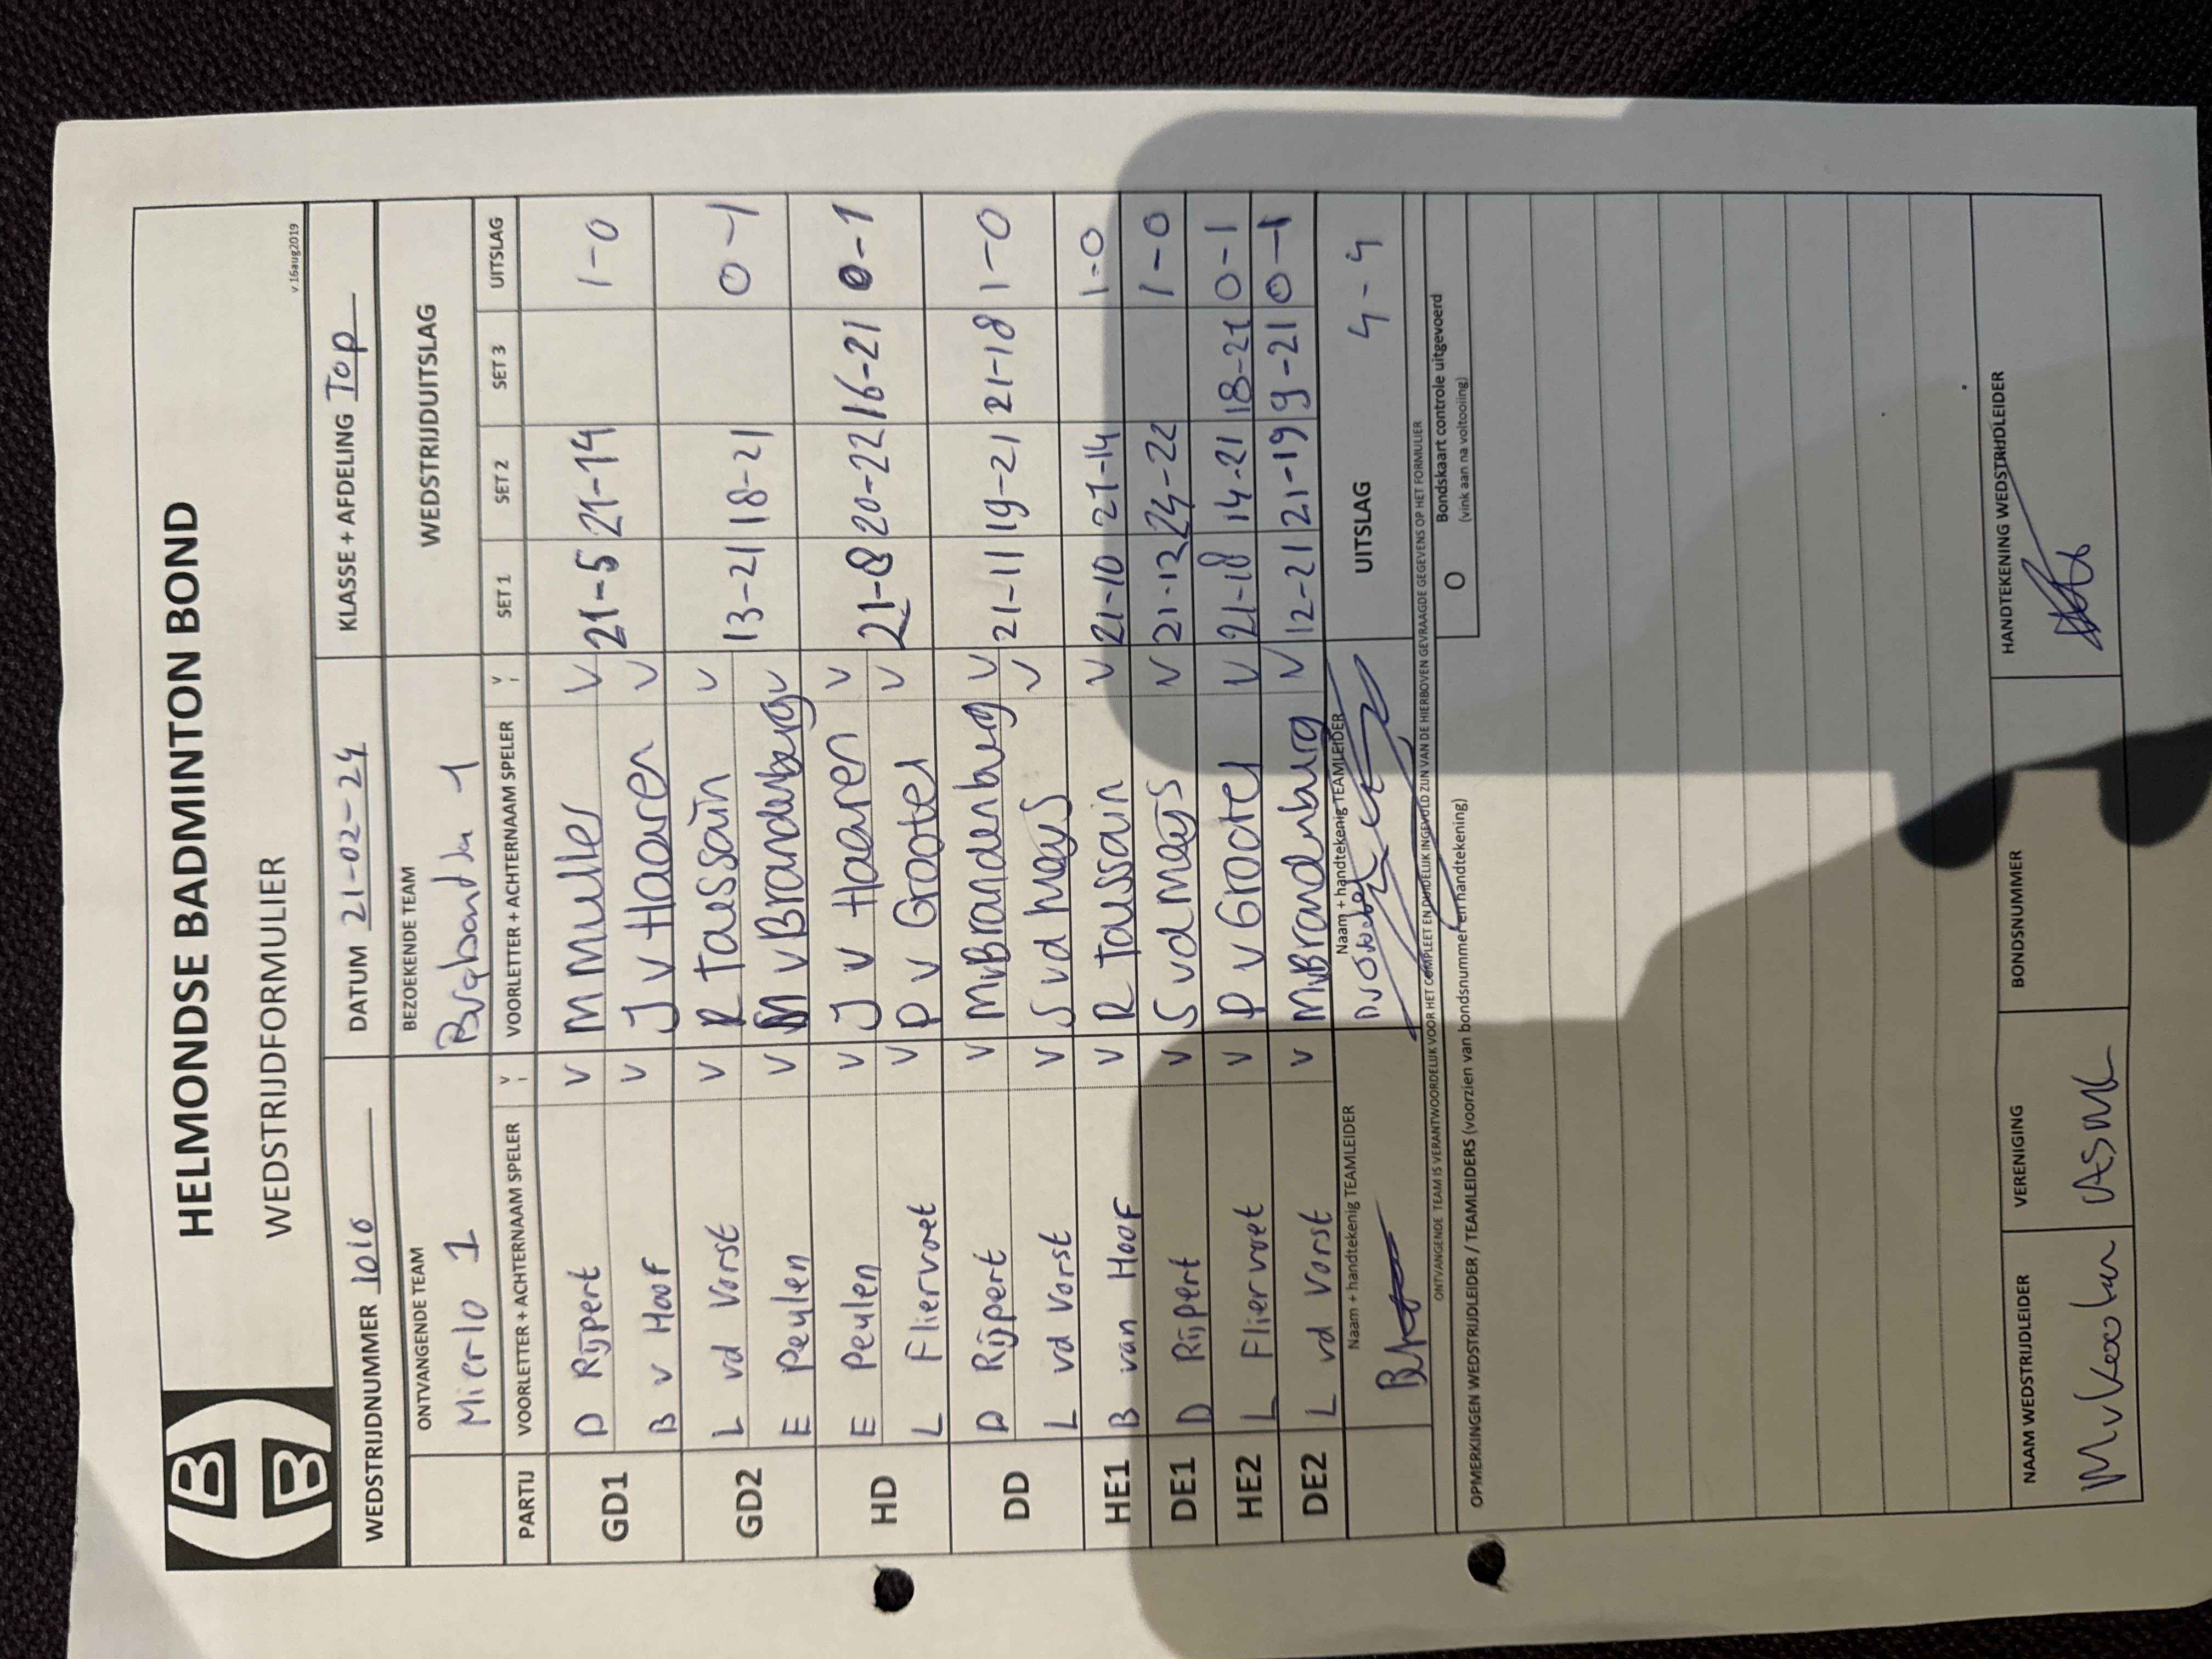 HELMONDSE BADMINTON BOND
WEDSTRIJDFORMULIER
v 16aug2019
WEDSTRIJDNUMMER 1010 DATUM 21-02-24 KLASSE + AFDELING Top
ONTVANGENDE TEAM BEZOEKENDE TEAM WEDSTRIJDUITSLAG
Mierlo 1 Brabantia 1
PARTIJ VOORLETTER + ACHTERNAAM SPELER V VOORLETTER + ACHTERNAAM SPELER V SET 1 SET 2 SET 3 UITSLAG
GD1 D Rijpert V M Muller V 21-5 21-14 1-0
B v Hoof V J v Haaren V
GD2 L vd Vorst V R Taussain V 13-21 18-21 0-1
E Peulen V M v Brandenburg V
HD E Peulen V J v Haaren V 21-8 20-22 16-21 0-1
L Fliervoet V P v Grootel V
DD D Rijpert V M v Brandenburg V 21-11 19-21 21-18 1-0
L vd Vorst V S vd Maeys V
HE1 B van Hoof V R Taussain V 21-10 21-14 1-0
DE1 D Rijpert V S vd Maeys V 21-12 24-22 1-0
HE2 L Fliervoet V P v Grootel V 21-18 14-21 18-21 0-1
DE2 L vd Vorst V M v Brandenburg V 12-21 21-19 9-21 0-1
Naam + handtekenig TEAMLEIDER Naam + handtekenig TEAMLEIDER UITSLAG 4-4
ONTVANGENDE TEAM IS VERANTWOORDELIJK VOOR HET COMPLEET EN DUIDELIJK INGEVULD ZIJN VAN DE HIERBOVEN GEVRAAGDE GEGEVENS OP HET FORMULIER
OPMERKINGEN WEDSTRIJDLEIDER / TEAMLEIDERS (voorzien van bondsnummer en handtekening)
O Bondskaart controle uitgevoerd
(vink aan na voltooiing)
NAAM WEDSTRIJDLEIDER VERENIGING BONDSNUMMER HANDTEKENING WEDSTRIJDLEIDER